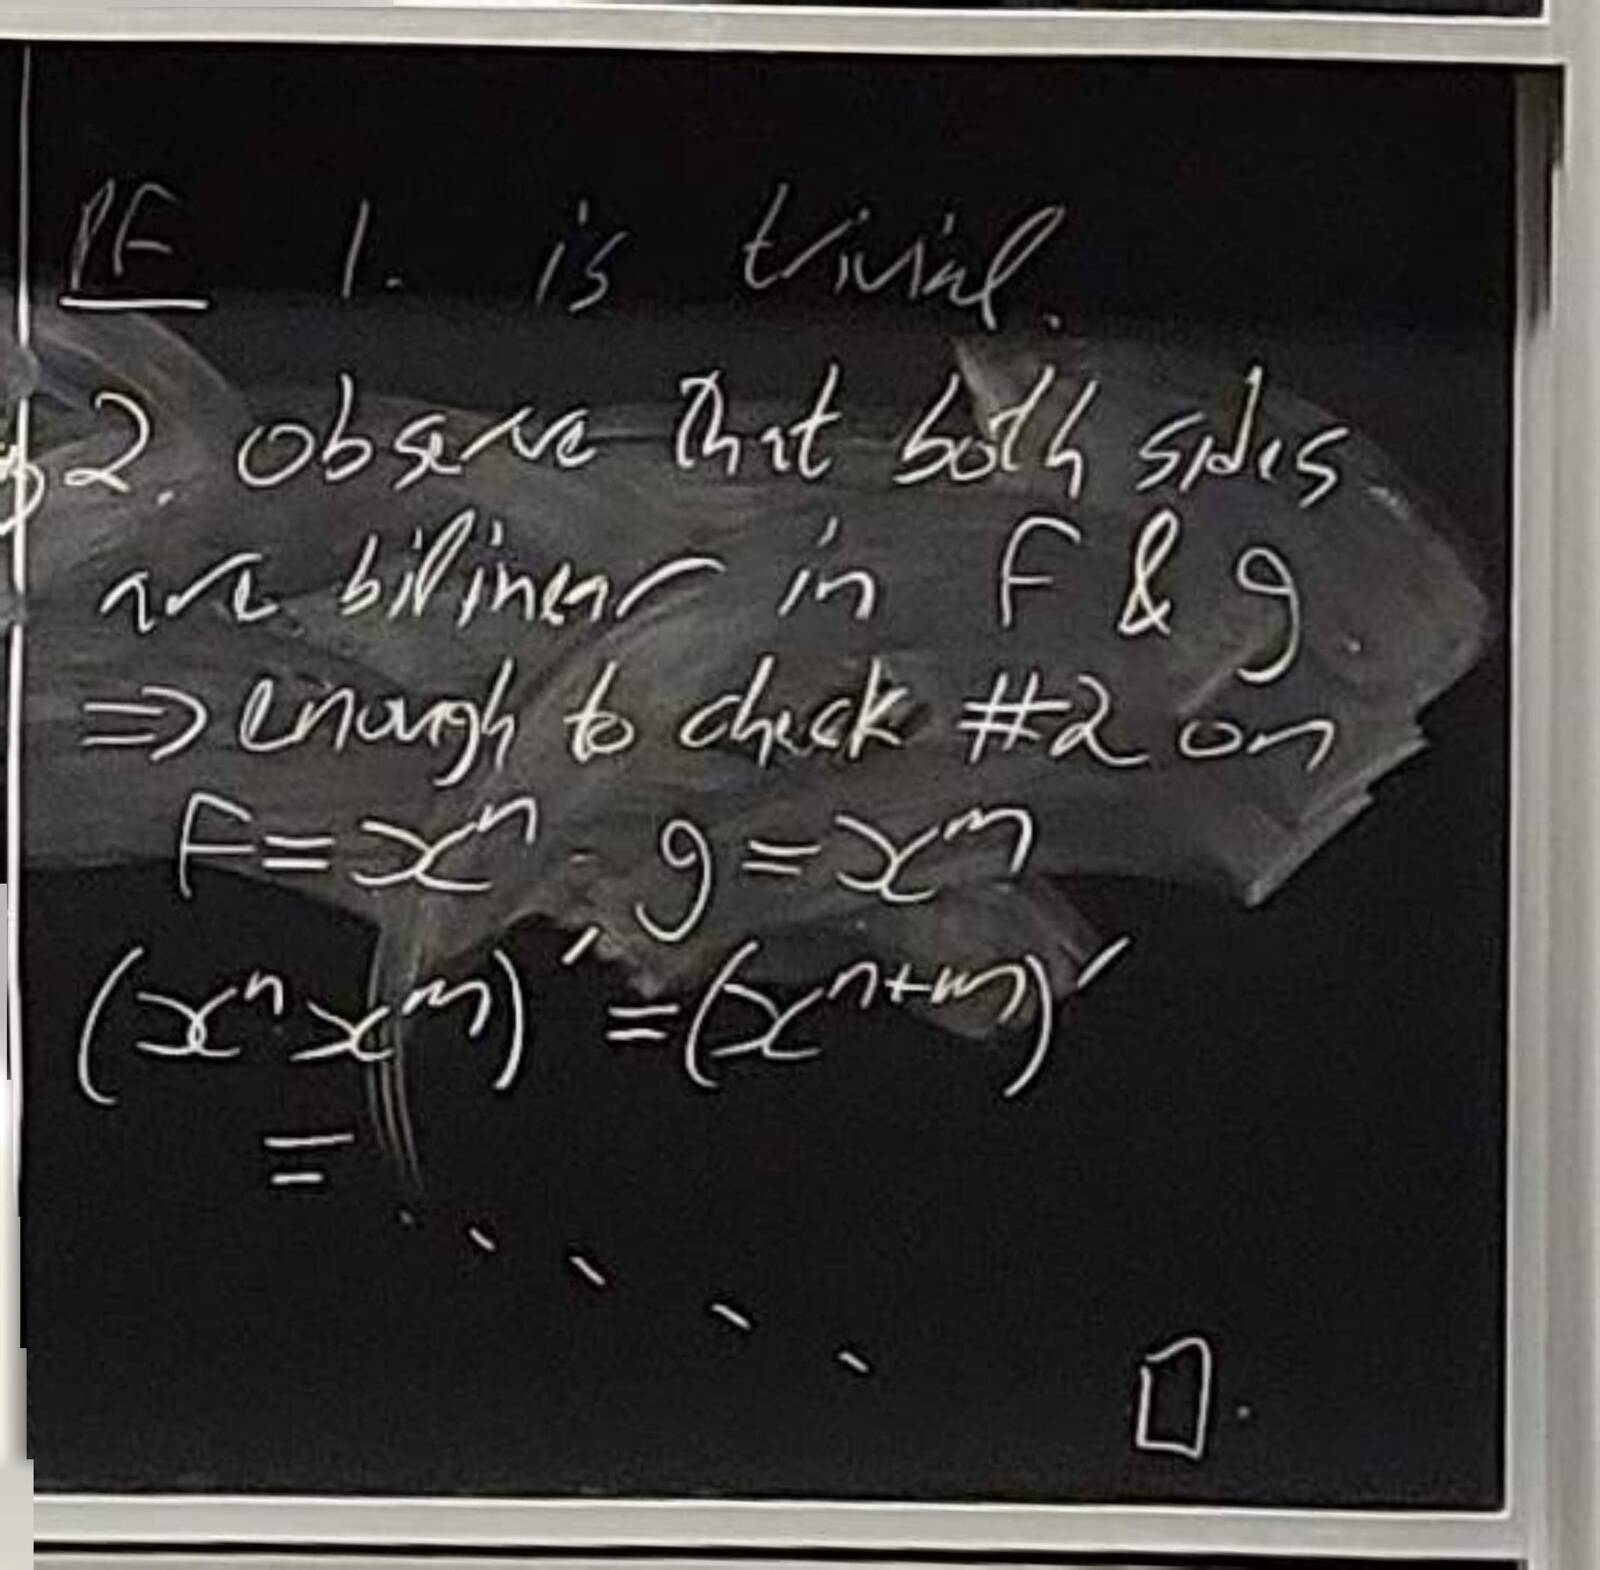 Pf 1. is trivial.
2. observe that both sides
are bilinear in f & g
⇒ enough to check #2 on
f = xⁿ, g = xᵐ
(xⁿxᵐ)′ = (xⁿ⁺ᵐ)′
= - - - - -
□.